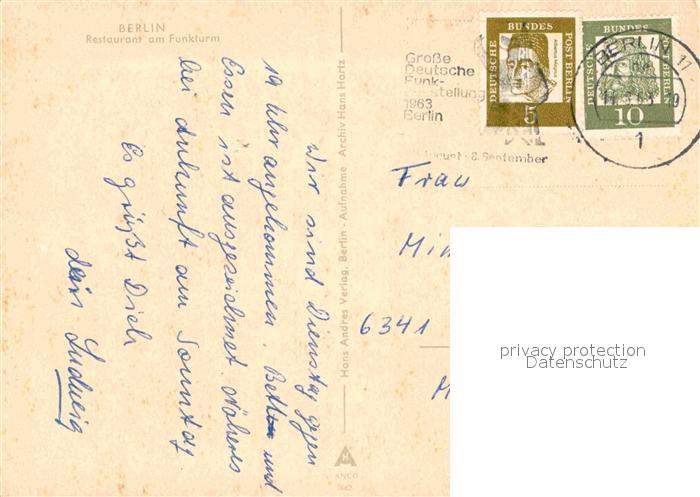 BERLIN
Restaurant am Funkturm
Wir sind Dienstag gegen
19 Uhr angekommen. Betten und
Essen ist ausgezeichnet. Näheres
bei Ankunft am Sonntag.
Es grüßt Dich
dein Ludwig
Hans Andres Verlag, Berlin · Aufnahme, Archiv Hans Hartz
ANCO
Große
Deutsche
Funk-
stellung
1963
Berlin
August - 8. September
DEUTSCHE BUNDES POST BERLIN
5
DEUTSCHE BUNDES POST BERLIN
10
BERLIN 11
1
Frau
6341
privacy protection
Datenschutz